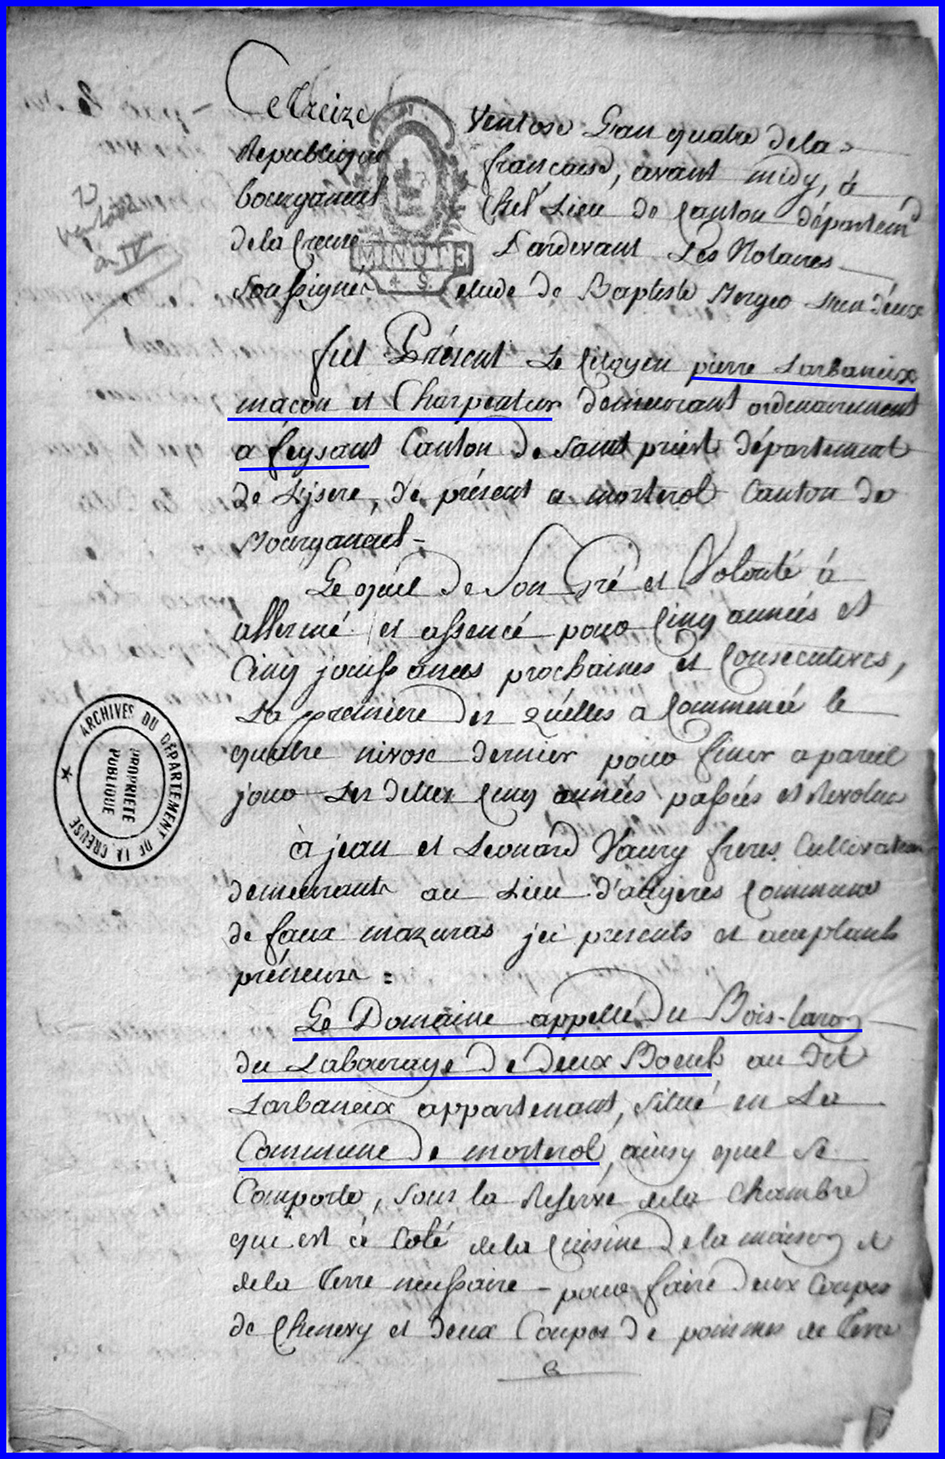 Ce Treize Ventose L'an quatre de la
Republique francaise, avant midy, à
bourganeuf Chef Lieu de Canton départem
de la Creuse Pardevant Les Notaires
Soussignes etude de Baptiste
MINUTE
ventose
an IV
fut Présent Le Citoyen pierre Larbaneix
macon et Charpentier demeurant ordinairement
a feysant Canton de Saint priest département
de L'jsere, de présent a morterol Canton de
Bourganeuf -
Le quel de Son Gré et Volonté à
affermé et assencé pour Cinq années et
Cinq jouissances prochaines et Consecutives,
La première des quelles a Commencé le
quatre nivose dernier pour finir a pareil
jour Les dittes Cinq années passées et Revolues
à jean et Léonard Vaury freres Cultivateurs
demeurants au Lieu d'augères Commune
de faux mazuras jci presents et acceptants
preneurs =
Le Domaine appellé du Bois-Laron
du Labourage de deux Boeufs au dit
Larbaneix appartenant, situé en La
Commune de morterol, ainsy quel se
Comporte, sous la Reserve de la Chambre
qui est à Coté de la Cuisine de la maison et
de la Terre necessaire - pour faire deux Coupes
de Chenevy et deux Coupes de pommes de Terre
ARCHIVES DU DÉPARTEMENT DE LA CREUSE
PROPRIÉTÉ
PUBLIQUE